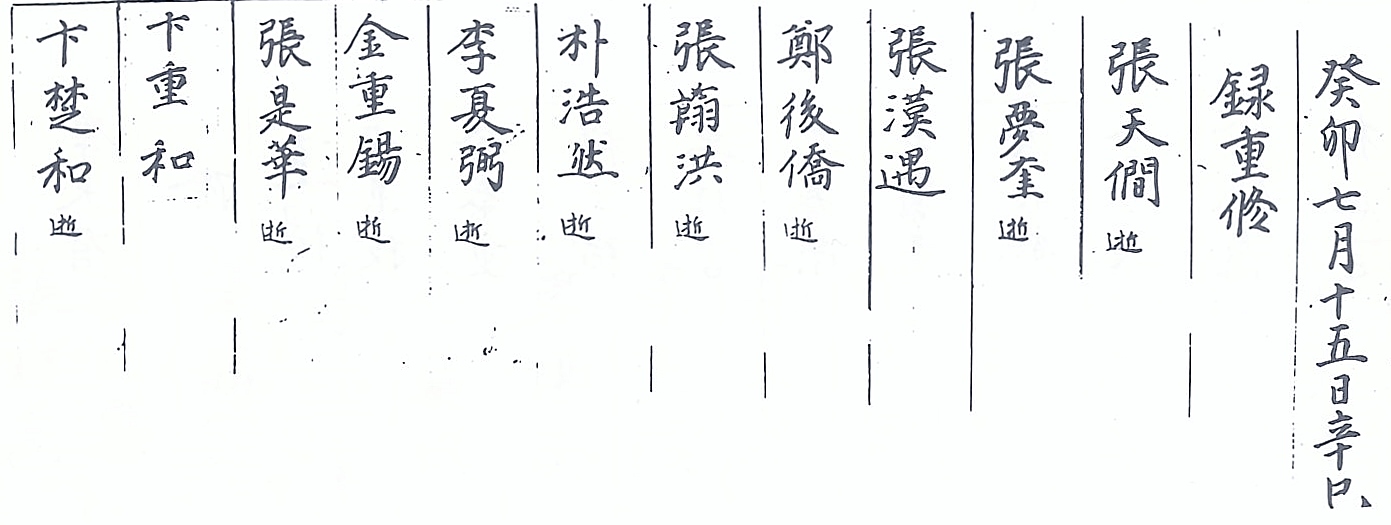 癸卯七月十五日辛巳
録重修
張天僩 逝
張夢奎 逝
張漢遇
鄭後僑 逝
張翮洪 逝
朴浩然 逝
李夏弼 逝
金重錫 逝
張是華 逝
卞重和
卞楚和 逝